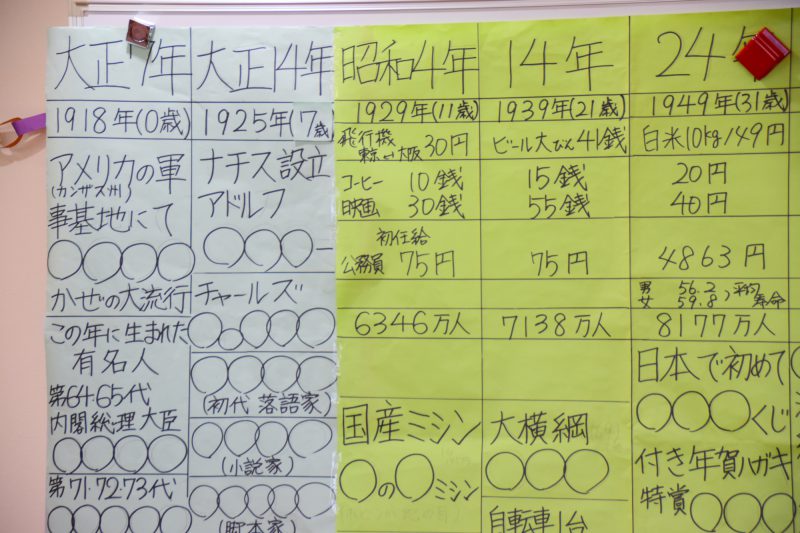 大正7年
1918年(0歳)
アメリカの軍
(カンザス州)
事基地にて
○○○○
かぜの大流行
この年に生まれた
有名人
第64.65代
内閣総理大臣
○○○○
第71.72.73代
○○○○○
大正14年
1925年(7歳)
ナチス設立
アドルフ
○○○ー
チャールズ
○○○○○○
○○○○
(初代 落語家)
○○○○
(小説家)
○○○○○
(脚本家)
昭和4年
1929年(11歳)
飛行機
東京↔大阪 30円
コーヒー 10銭
映画 30銭
初任給
公務員 75円
6346万人
国産ミシン
○の○ミシン
14年
1939年(21歳)
ビール大びん41銭
15銭
55銭
75円
7138万人
大横綱
○○○
自転車1台
24年
1949年(31歳)
白米10kg149円
20円
40円
4863円
男 56.2
女 59.8
平均
寿命
8177万人
日本で初めて
○○○くじ
付き年賀ハガキ
特賞 ○○○